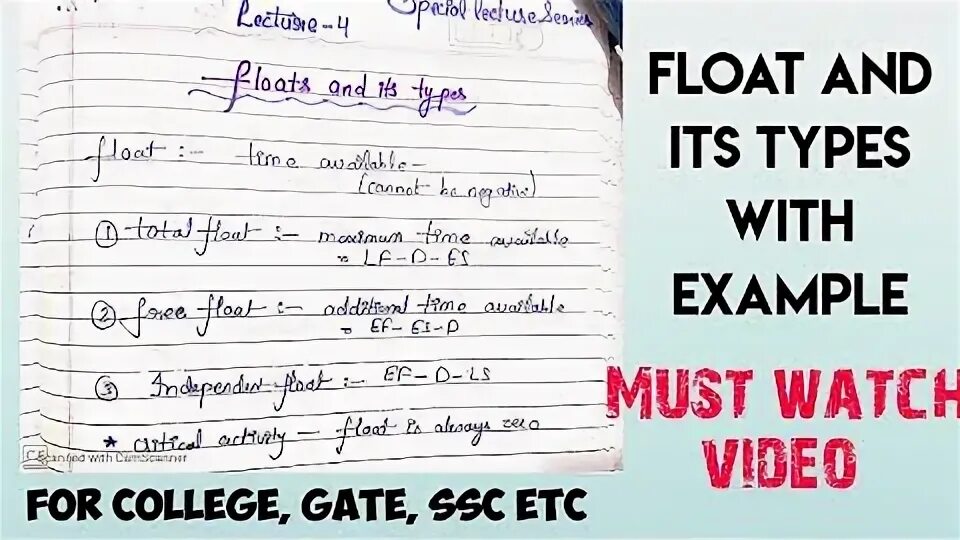 Lecture-4 Special lecture Series
floats and its types
float :- time available-
(cannot be negative)
① total float :- maximum time available
= LF-D-ES
② free float :- additional time available
= EF-ES-D
③ Independent float :- EF-D-LS
* critical activity - float is always zero
Scanned with CamScanner
FLOAT AND
ITS TYPES
WITH
EXAMPLE
MUST WATCH
VIDEO
FOR COLLEGE, GATE, SSC ETC